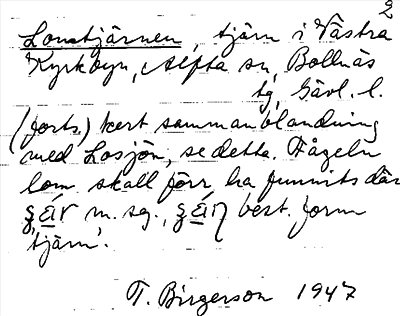 2
Lomtjärnen, tjärn i Västra
Kyrkbyn, Alfta sn, Bollnäs
tg, Gävl. l.
(forts.) kert sammanblandning
med Losjön, se detta. Fågeln
lom skall förr ha funnits där
m. sg., best. form
'tjärn'.
T. Birgerson 1947